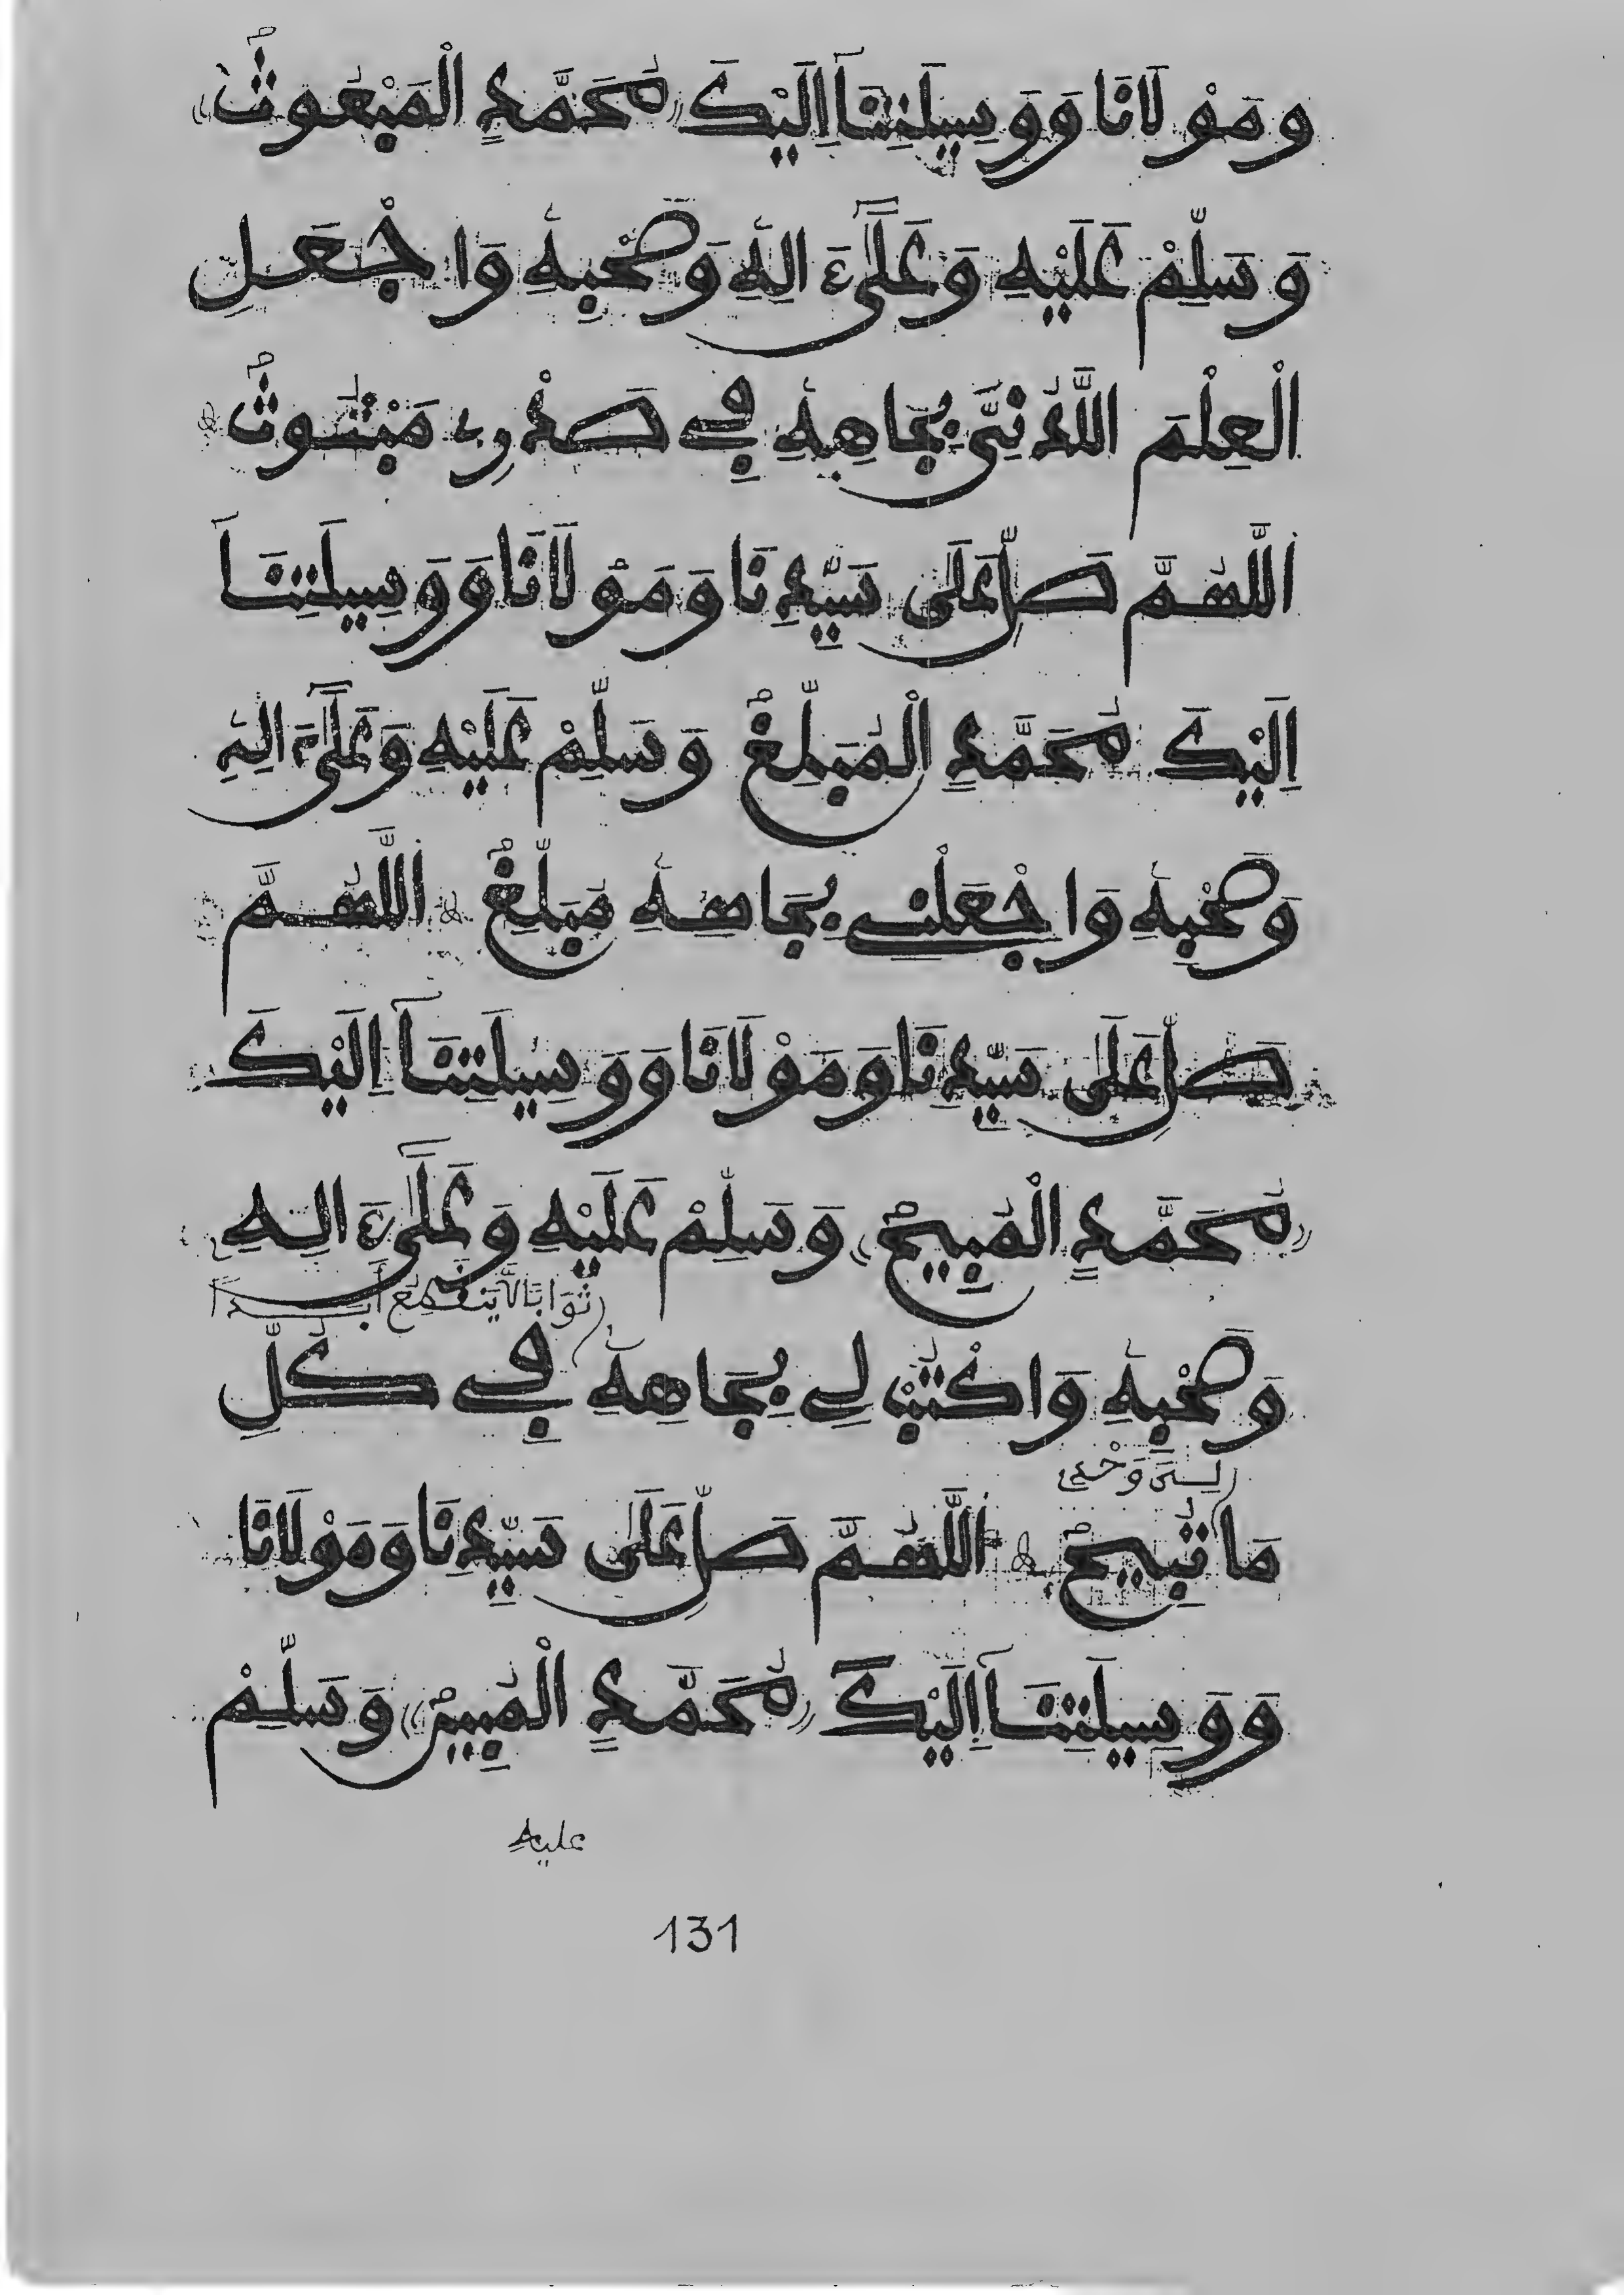 وَمَوْلَانَا وَوَسِيلَتِنَا إِلَيْكَ (مُحَمَّدٍ الْمَبْعُوثْ)
وَسَلِّمْ عَلَيْهِ وَعَلَىٰ ءَالِهِ وَصَحْبِهِ وَاجْعَلِ
الْعِلْمَ اللَّدُنِّيَّ بِجَاهِهِ فِي صَدْرِي مَبْثُوثْ
اللَّهُمَّ صَلِّ عَلَى سَيِّدِنَا وَمَوْلَانَا وَوَسِيلَتِنَا
إِلَيْكَ مُحَمَّدٍ الْمُبَلِّغْ وَسَلِّمْ عَلَيْهِ وَعَلَىٰ ءَالِهِ
وَصَحْبِهِ وَاجْعَلْنِي بِجَاهِهِ مُبَلِّغْ اللَّهُمَّ
صَلِّ عَلَى سَيِّدِنَا وَمَوْلَانَا وَوَسِيلَتِنَا إِلَيْكَ
(مُحَمَّدٍ الْمُبِيحْ) وَسَلِّمْ عَلَيْهِ وَعَلَىٰ ءَالِهِ
ثَوَابًا لَّا يَنْقَطِعُ أَبَدًا
وَصَحْبِهِ وَاكْتُبْ لِي بِجَاهِهِ فِي كُلِّ
مَا تُبِيحْ اللَّهُمَّ صَلِّ عَلَى سَيِّدِنَا وَمَوْلَانَا
وَوَسِيلَتِنَا إِلَيْكَ (مُحَمَّدٍ الْمُبِينْ) وَسَلِّمْ
عليه
131